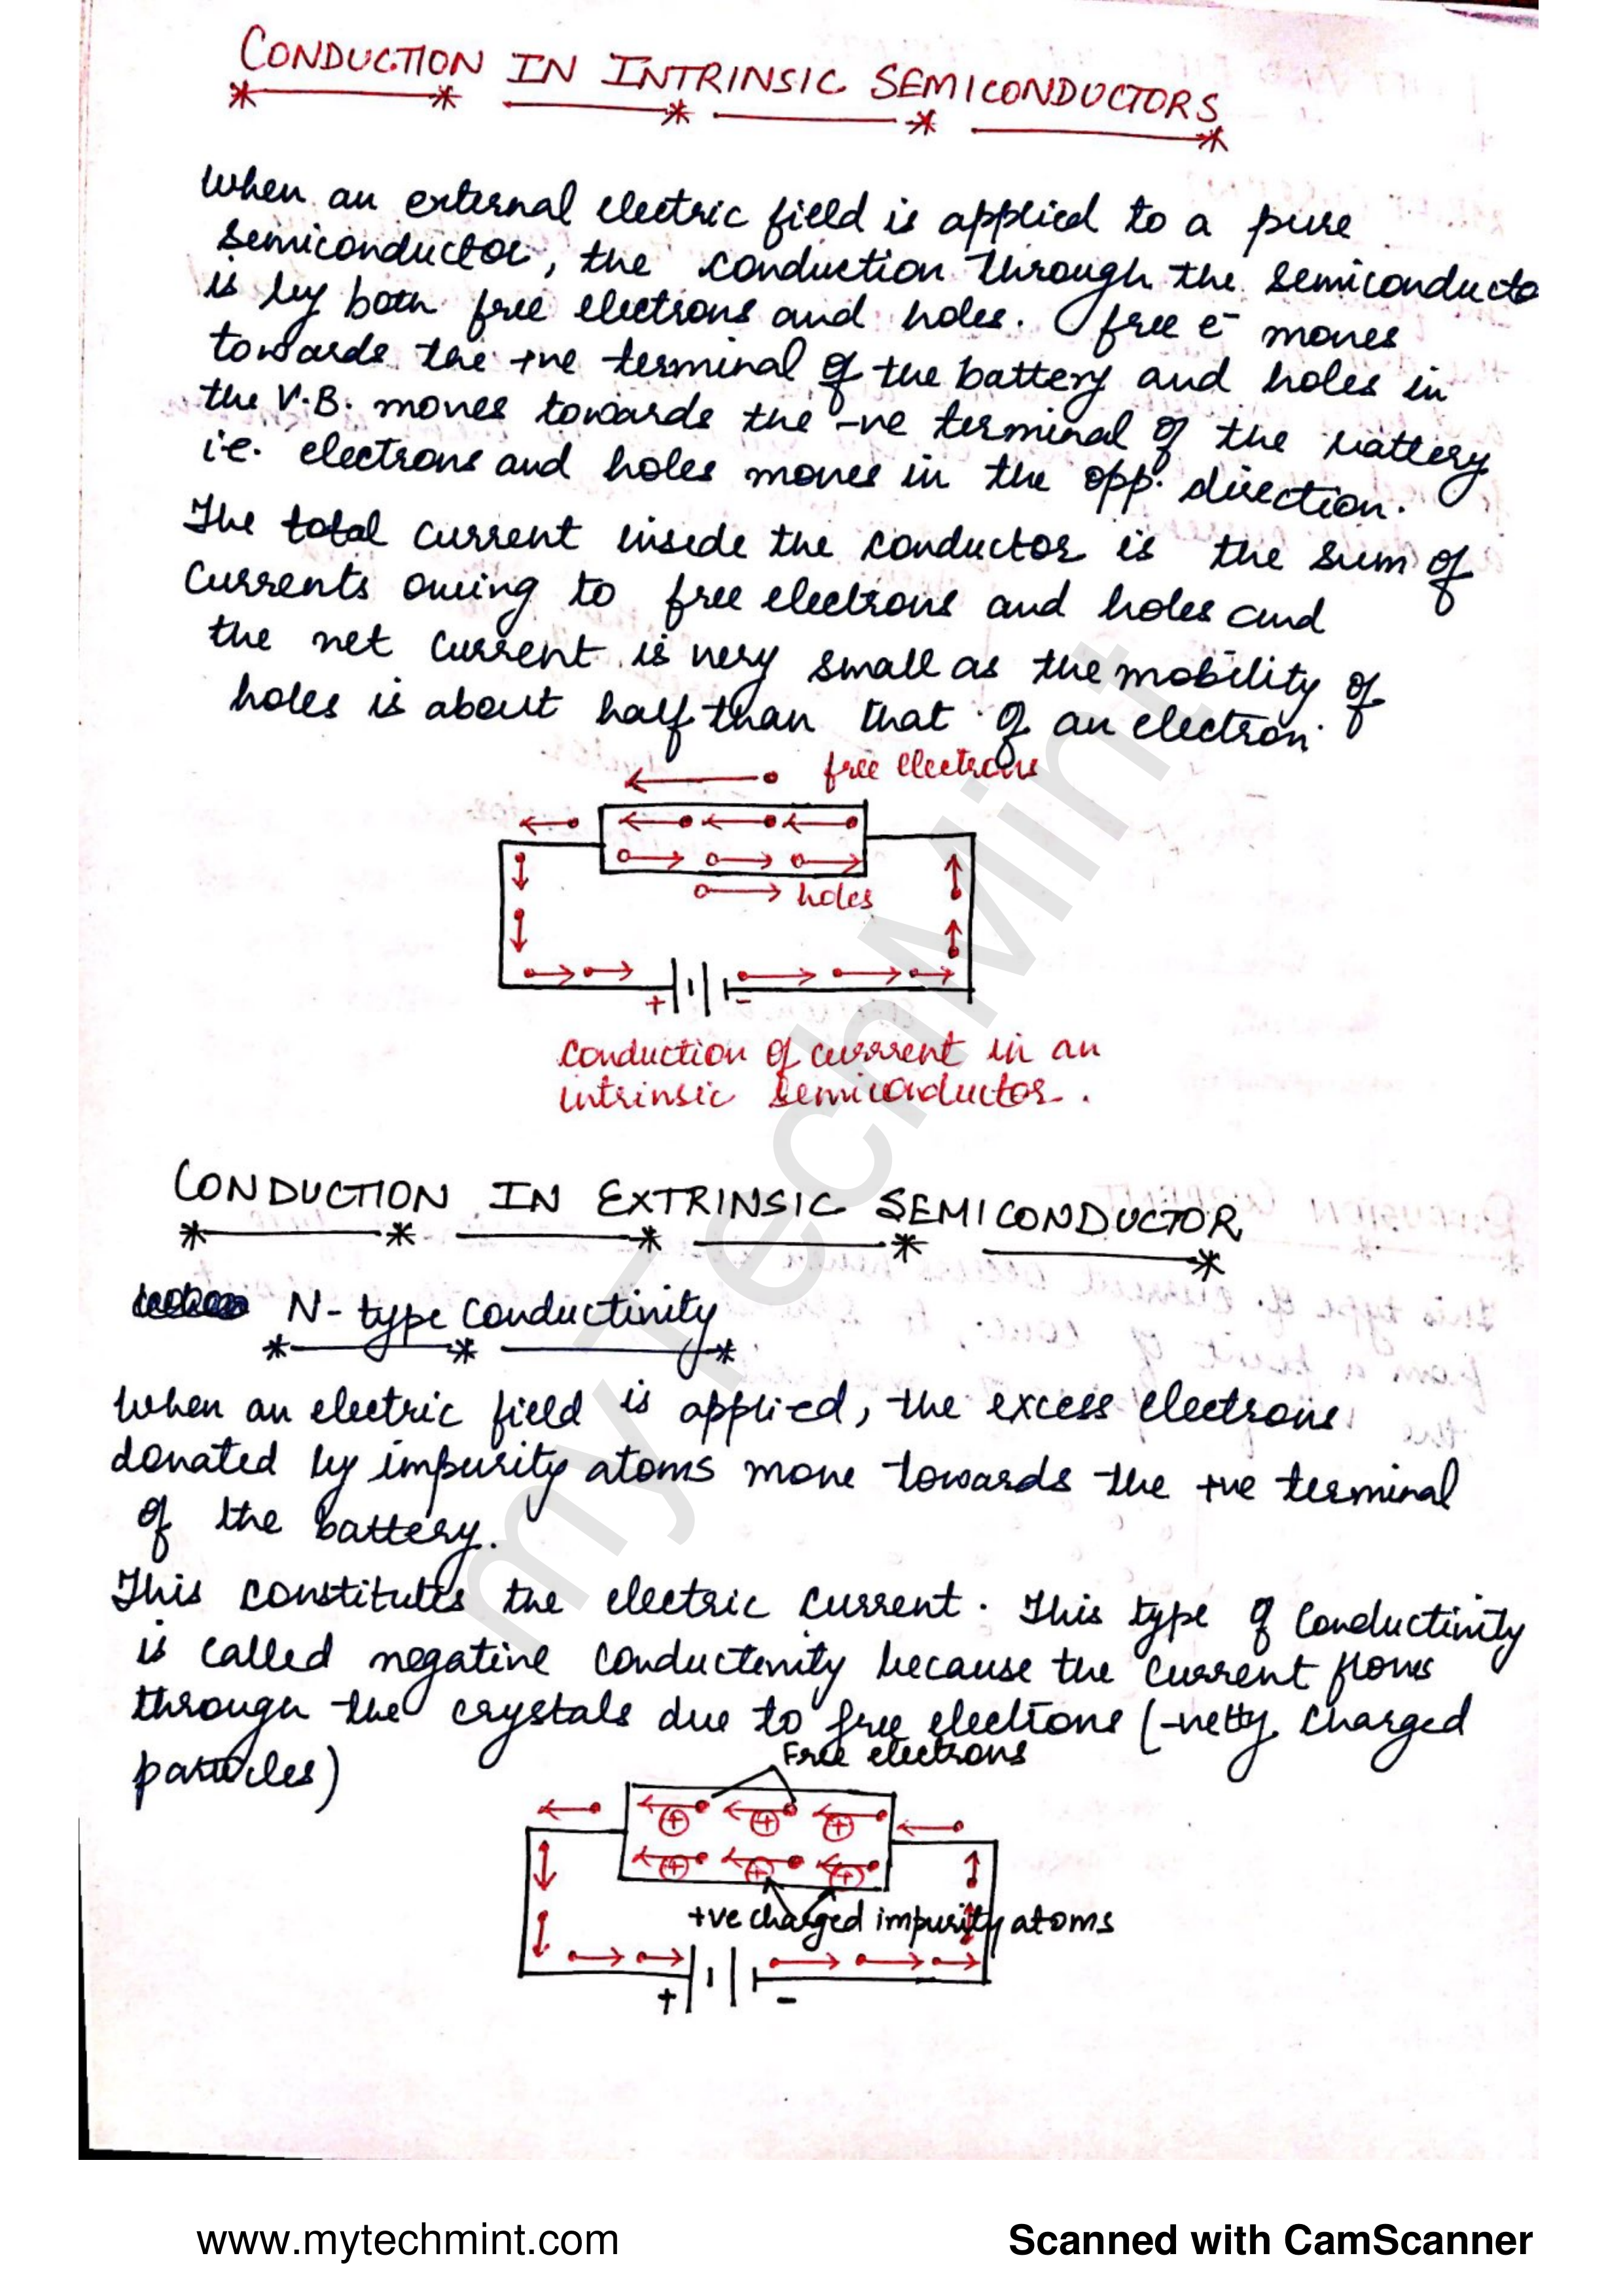 CONDUCTION IN INTRINSIC SEMICONDUCTORS
When an external electric field is applied to a pure
semiconductor, the conduction through the semiconducto
is by both free electrons and holes. free e⁻ moves
towards the +ve terminal of the battery and holes in
the V.B. moves towards the -ve terminal of the battery
i.e. electrons and holes moves in the opp. direction.
The total current inside the conductor is the sum of
currents owing to free electrons and holes and
the net current is very small as the mobility of
holes is about half than that of an electron.
free electrons
holes
+ -
Conduction of current in an
intrinsic semiconductor.
CONDUCTION IN EXTRINSIC SEMICONDUCTOR
N-type Conductivity
When an electric field is applied, the excess electrons
donated by impurity atoms move towards the +ve terminal
of the battery.
This constitutes the electric current. This type of Conductivity
is called negative conductivity because the current flows
through the crystals due to free electrons (-vetly charged
particles)
Free electrons
+ + +
+ + +
+ve charged impurity atoms
+ -
myTechMint
www.mytechmint.com
Scanned with CamScanner